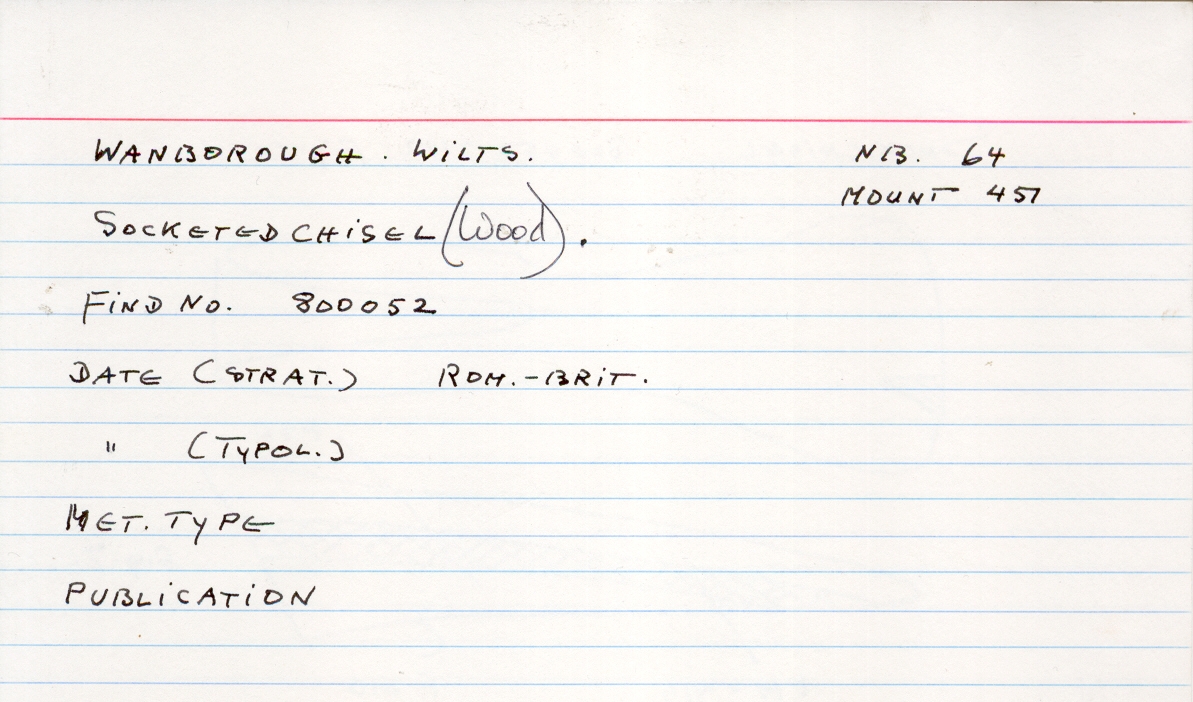 WANBOROUGH. WILTS. NB. 64
MOUNT 451
SOCKETED CHISEL (Wood).
FIND NO. 800052
DATE (STRAT.) ROM.-BRIT.
" (TYPOL.)
MET. TYPE
PUBLICATION